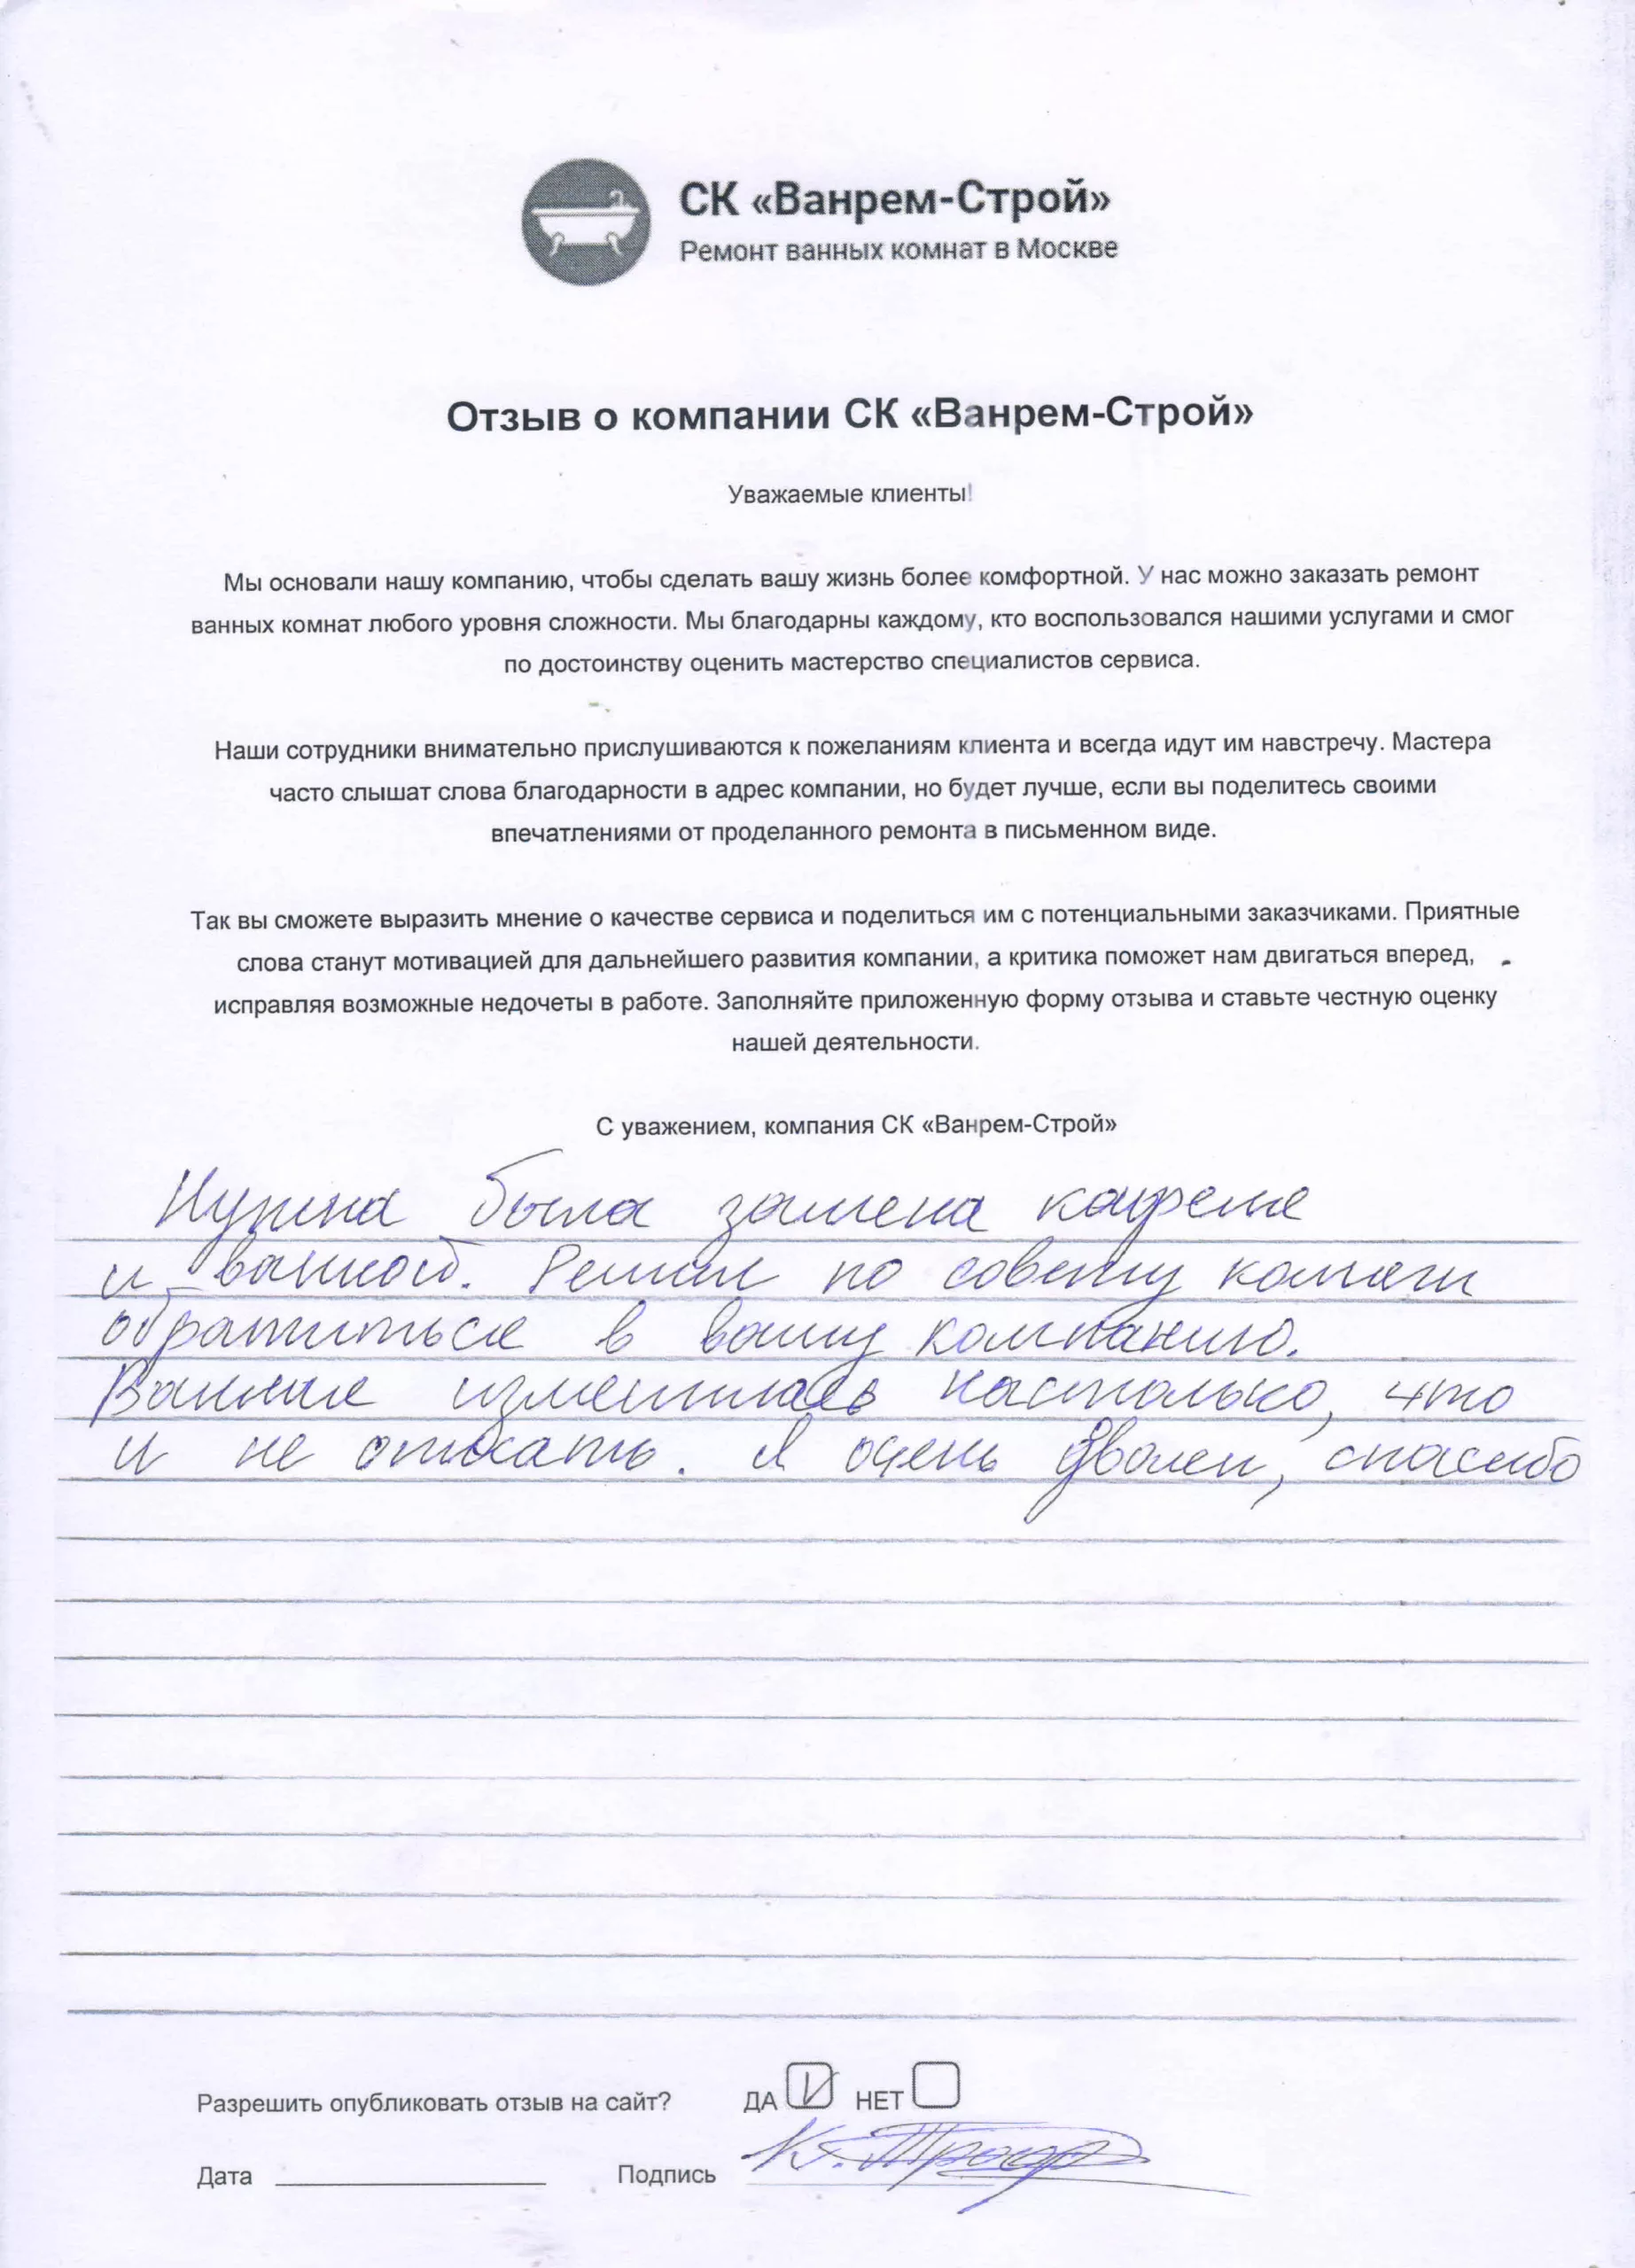 СК «Ванрем-Строй»
Ремонт ванных комнат в Москве
Отзыв о компании СК «Ванрем-Строй»
Уважаемые клиенты!
Мы основали нашу компанию, чтобы сделать вашу жизнь более комфортной. У нас можно заказать ремонт
ванных комнат любого уровня сложности. Мы благодарны каждому, кто воспользовался нашими услугами и смог
по достоинству оценить мастерство специалистов сервиса.
Наши сотрудники внимательно прислушиваются к пожеланиям клиента и всегда идут им навстречу. Мастера
часто слышат слова благодарности в адрес компании, но будет лучше, если вы поделитесь своими
впечатлениями от проделанного ремонта в письменном виде.
Так вы сможете выразить мнение о качестве сервиса и поделиться им с потенциальными заказчиками. Приятные
слова станут мотивацией для дальнейшего развития компании, а критика поможет нам двигаться вперед,
исправляя возможные недочеты в работе. Заполняйте приложенную форму отзыва и ставьте честную оценку
нашей деятельности.
С уважением, компания СК «Ванрем-Строй»
Нужна была замена кафеля
и ванной. Решил по совету коллеги
обратиться в вашу компанию.
Ванная изменилась настолько, что
и не описать. Я очень доволен, спасибо
Разрешить опубликовать отзыв на сайт? ДА V НЕТ
Дата Подпись